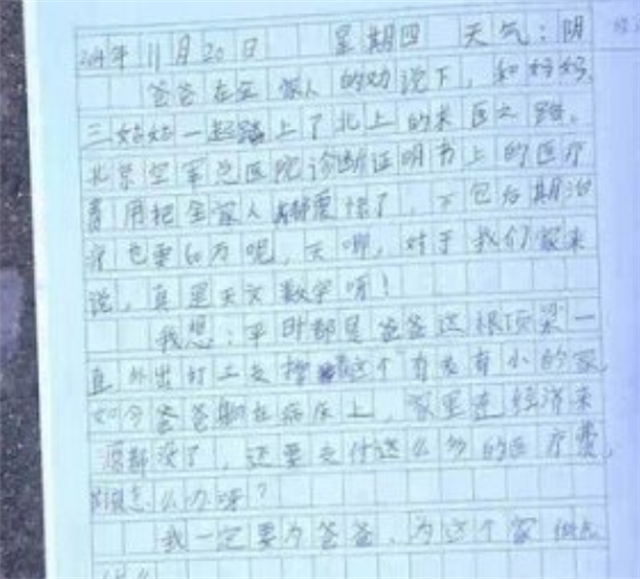 2014年11月20日 星期四 天气:阴
爸爸在全家人的劝说下,和妈妈、
三姑姑一起踏上了北上的求医之路。
北京空军总医院诊断证明书上的医疗
费用把全家人都震惊了,不包后期治
疗也要60万呢,天哪,对于我们家来
说,真是天文数字呀!
我想:平时都是爸爸这根顶梁一
直外出打工支撑着这个有老有小的家,
如今爸爸躺在病床上,家里连经济来
源都没了,还要支付这么多的医疗费,
怎么办呀?
我一定要为爸爸,为这个家做点